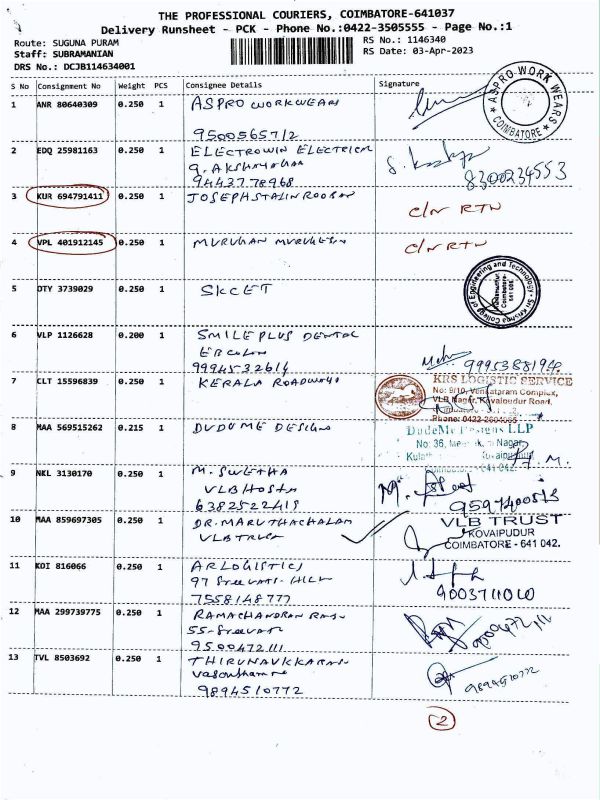 THE PROFESSIONAL COURIERS, COIMBATORE-641037
Delivery Runsheet - PCK - Phone No.:0422-3505555 - Page No.:1
Route: SUGUNA PURAM
RS No.: 1146340
Staff: SUBRAMANIAN
RS Date: 03-Apr-2023
DRS No.: DCJB114634001
S No Consignment No Weight PCS Consignee Details Signature
1 ANR 80640309 0.250 1 ASPRO WORKWEAR
9500565712
ASPRO WORK WEARS
COIMBATORE
2 EDQ 25981163 0.250 1 ELECTROWIN ELECTRICAL
9443778968
8300234553
3 KUR 694791411 0.250 1 JOSEPHSTALINROOBAN
c/n RTN
4 VPL 401912145 0.250 1 MURUGAN MURUGESN
c/n RTN
5 DTY 3739029 0.250 1 SKCET
Sri Krishna College of Engineering and Technology
Coimbatore-
641 008.
6 VLP 1126628 0.200 1 SMILE PLUS DENTAL
EB COLONY
9994532614
7 CLT 15596839 0.250 1 KERALA ROADWAYS
KRS LOGISTIC SERVICE
No: 9/10, Venkatram Complex,
VLB Nagar, Kovaipudur Road,
Phone: 0422-2604065
8 MAA 569515262 0.215 1 DUDUME DESIGNS
DudeMe Designs LLP
No: 36,
Nagar,
641 042.
9 NKL 3130170 0.250 1 M. SWETHA
VLB HOSTA
6382522419
10 MAA 859697305 0.250 1 DR. MARUTHACHALAM
VLB TRUST
VLB TRUST
KOVAIPUDUR
COIMBATORE - 641 042.
11 KOI 816066 0.250 1 AR LOGISTICS
97 Sreevats Hill
7558148777
9003711010
12 MAA 299739775 0.250 1 RAMACHANDRAN RAJU
55-Sreevats
9500472111
13 TVL 8503692 0.250 1 THIRUNAVKKARAS
9894510772
9894510772
2